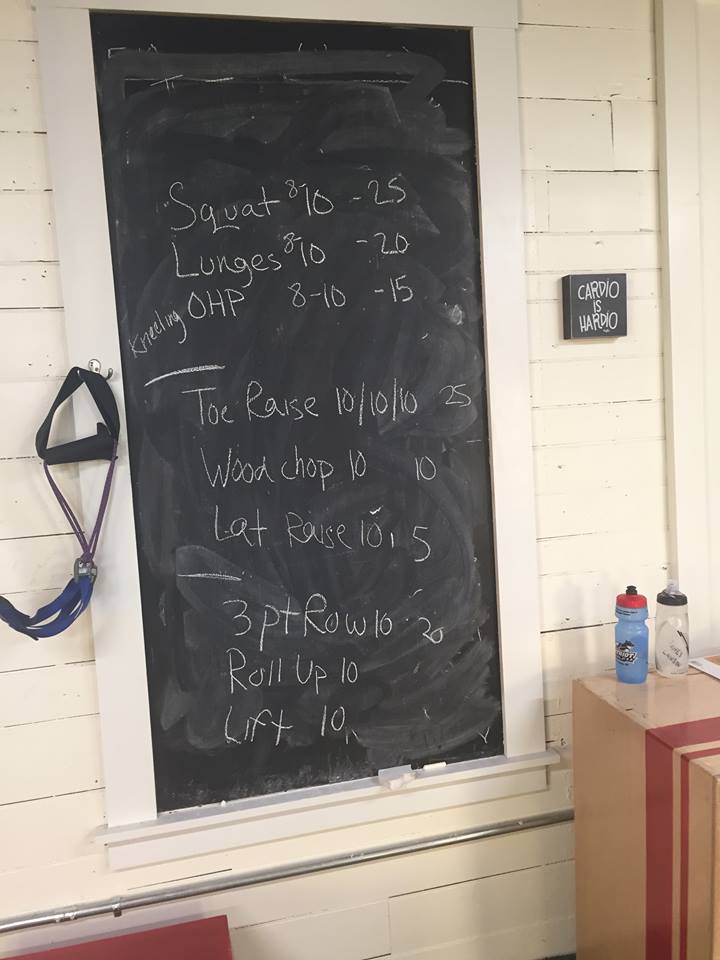 Squat 8-10 - 25
Lunges 8-10 - 20
Kneeling OHP 8-10 - 15
Toe Raise 10/10/10 25
Wood chop 10 10
Lat Raise 10, 5
3pt Row 10 20
Roll Up 10
Lift 10
CARDIO
IS
HARDIO